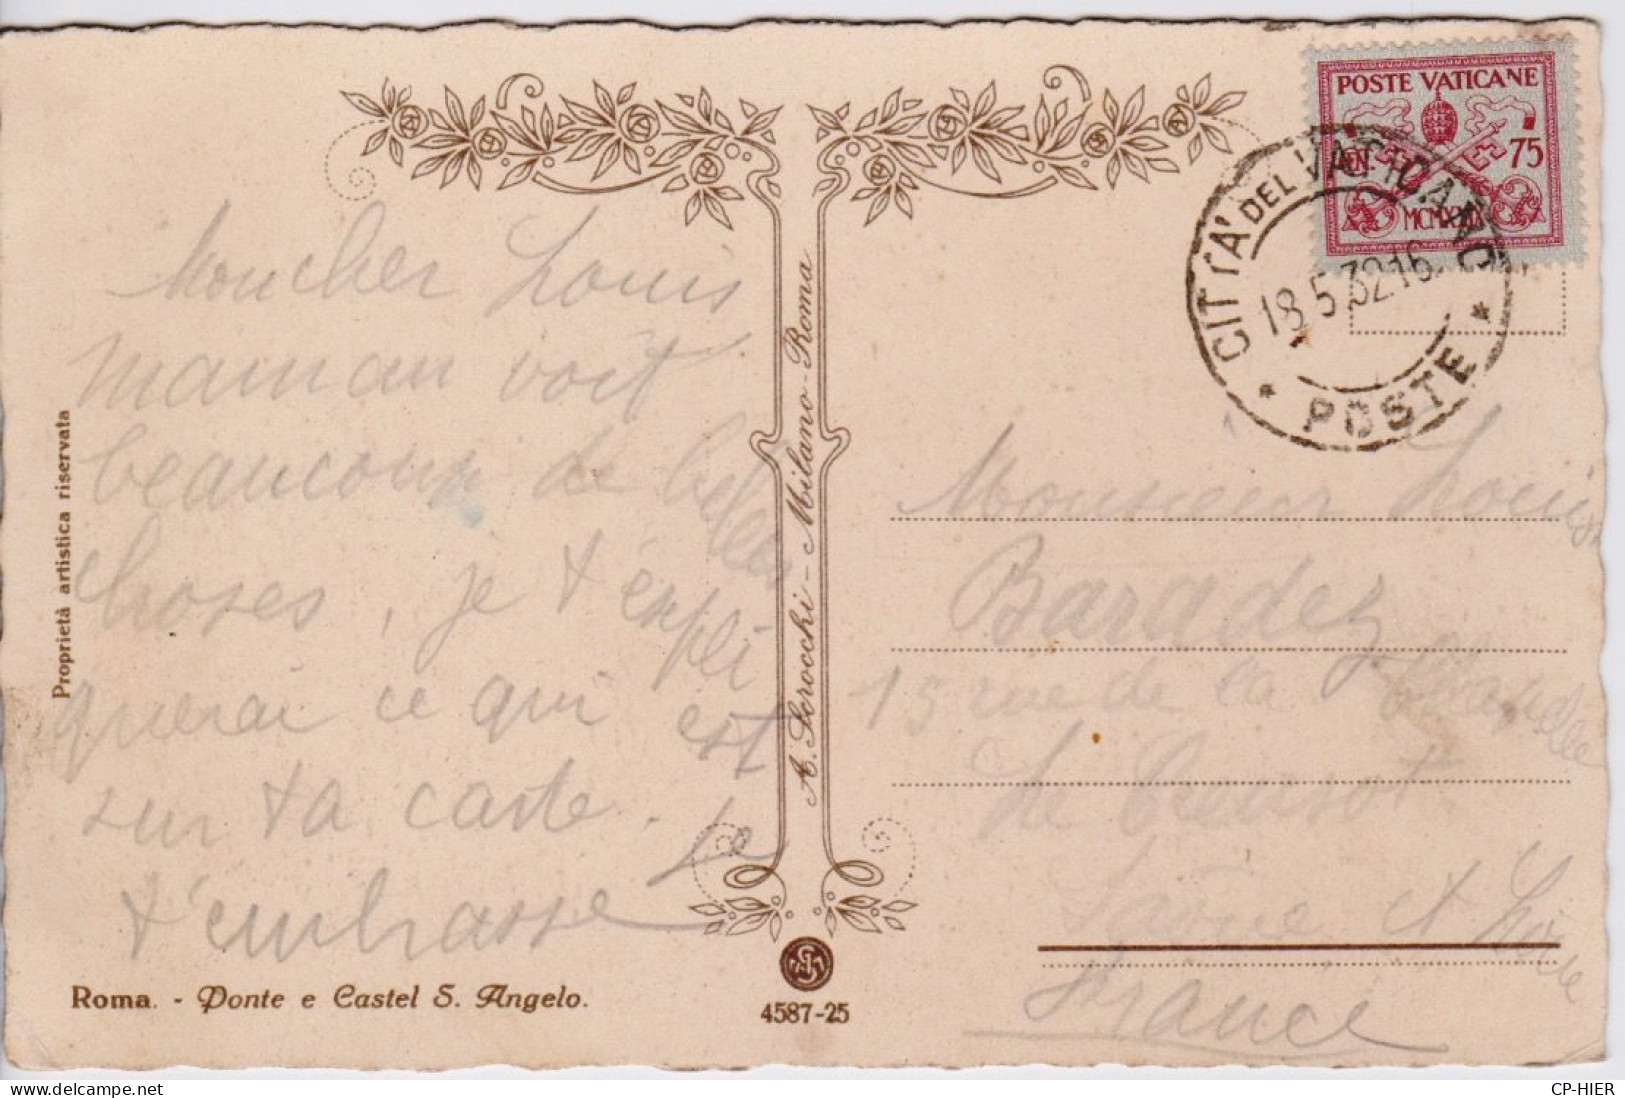 POSTE VATICANE
CEN 75
MCMXXIX
CITTA' DEL VATICANO
18.5.32.16
* POSTE *
Moncher Louis
maman voit
beaucoup de belles
choses, je t'expli
querai ce qui est
sur ta carte. Je
t'embrasse
Proprietà artistica riservata
A. Scrocchi - Milano-Roma
Monsieur Louis
Baradez
15 rue de la
Le Creusot
Saône et Loire
France
Roma. - Ponte e Castel S. Angelo.
4587-25
delcampe.net
CP-HIER